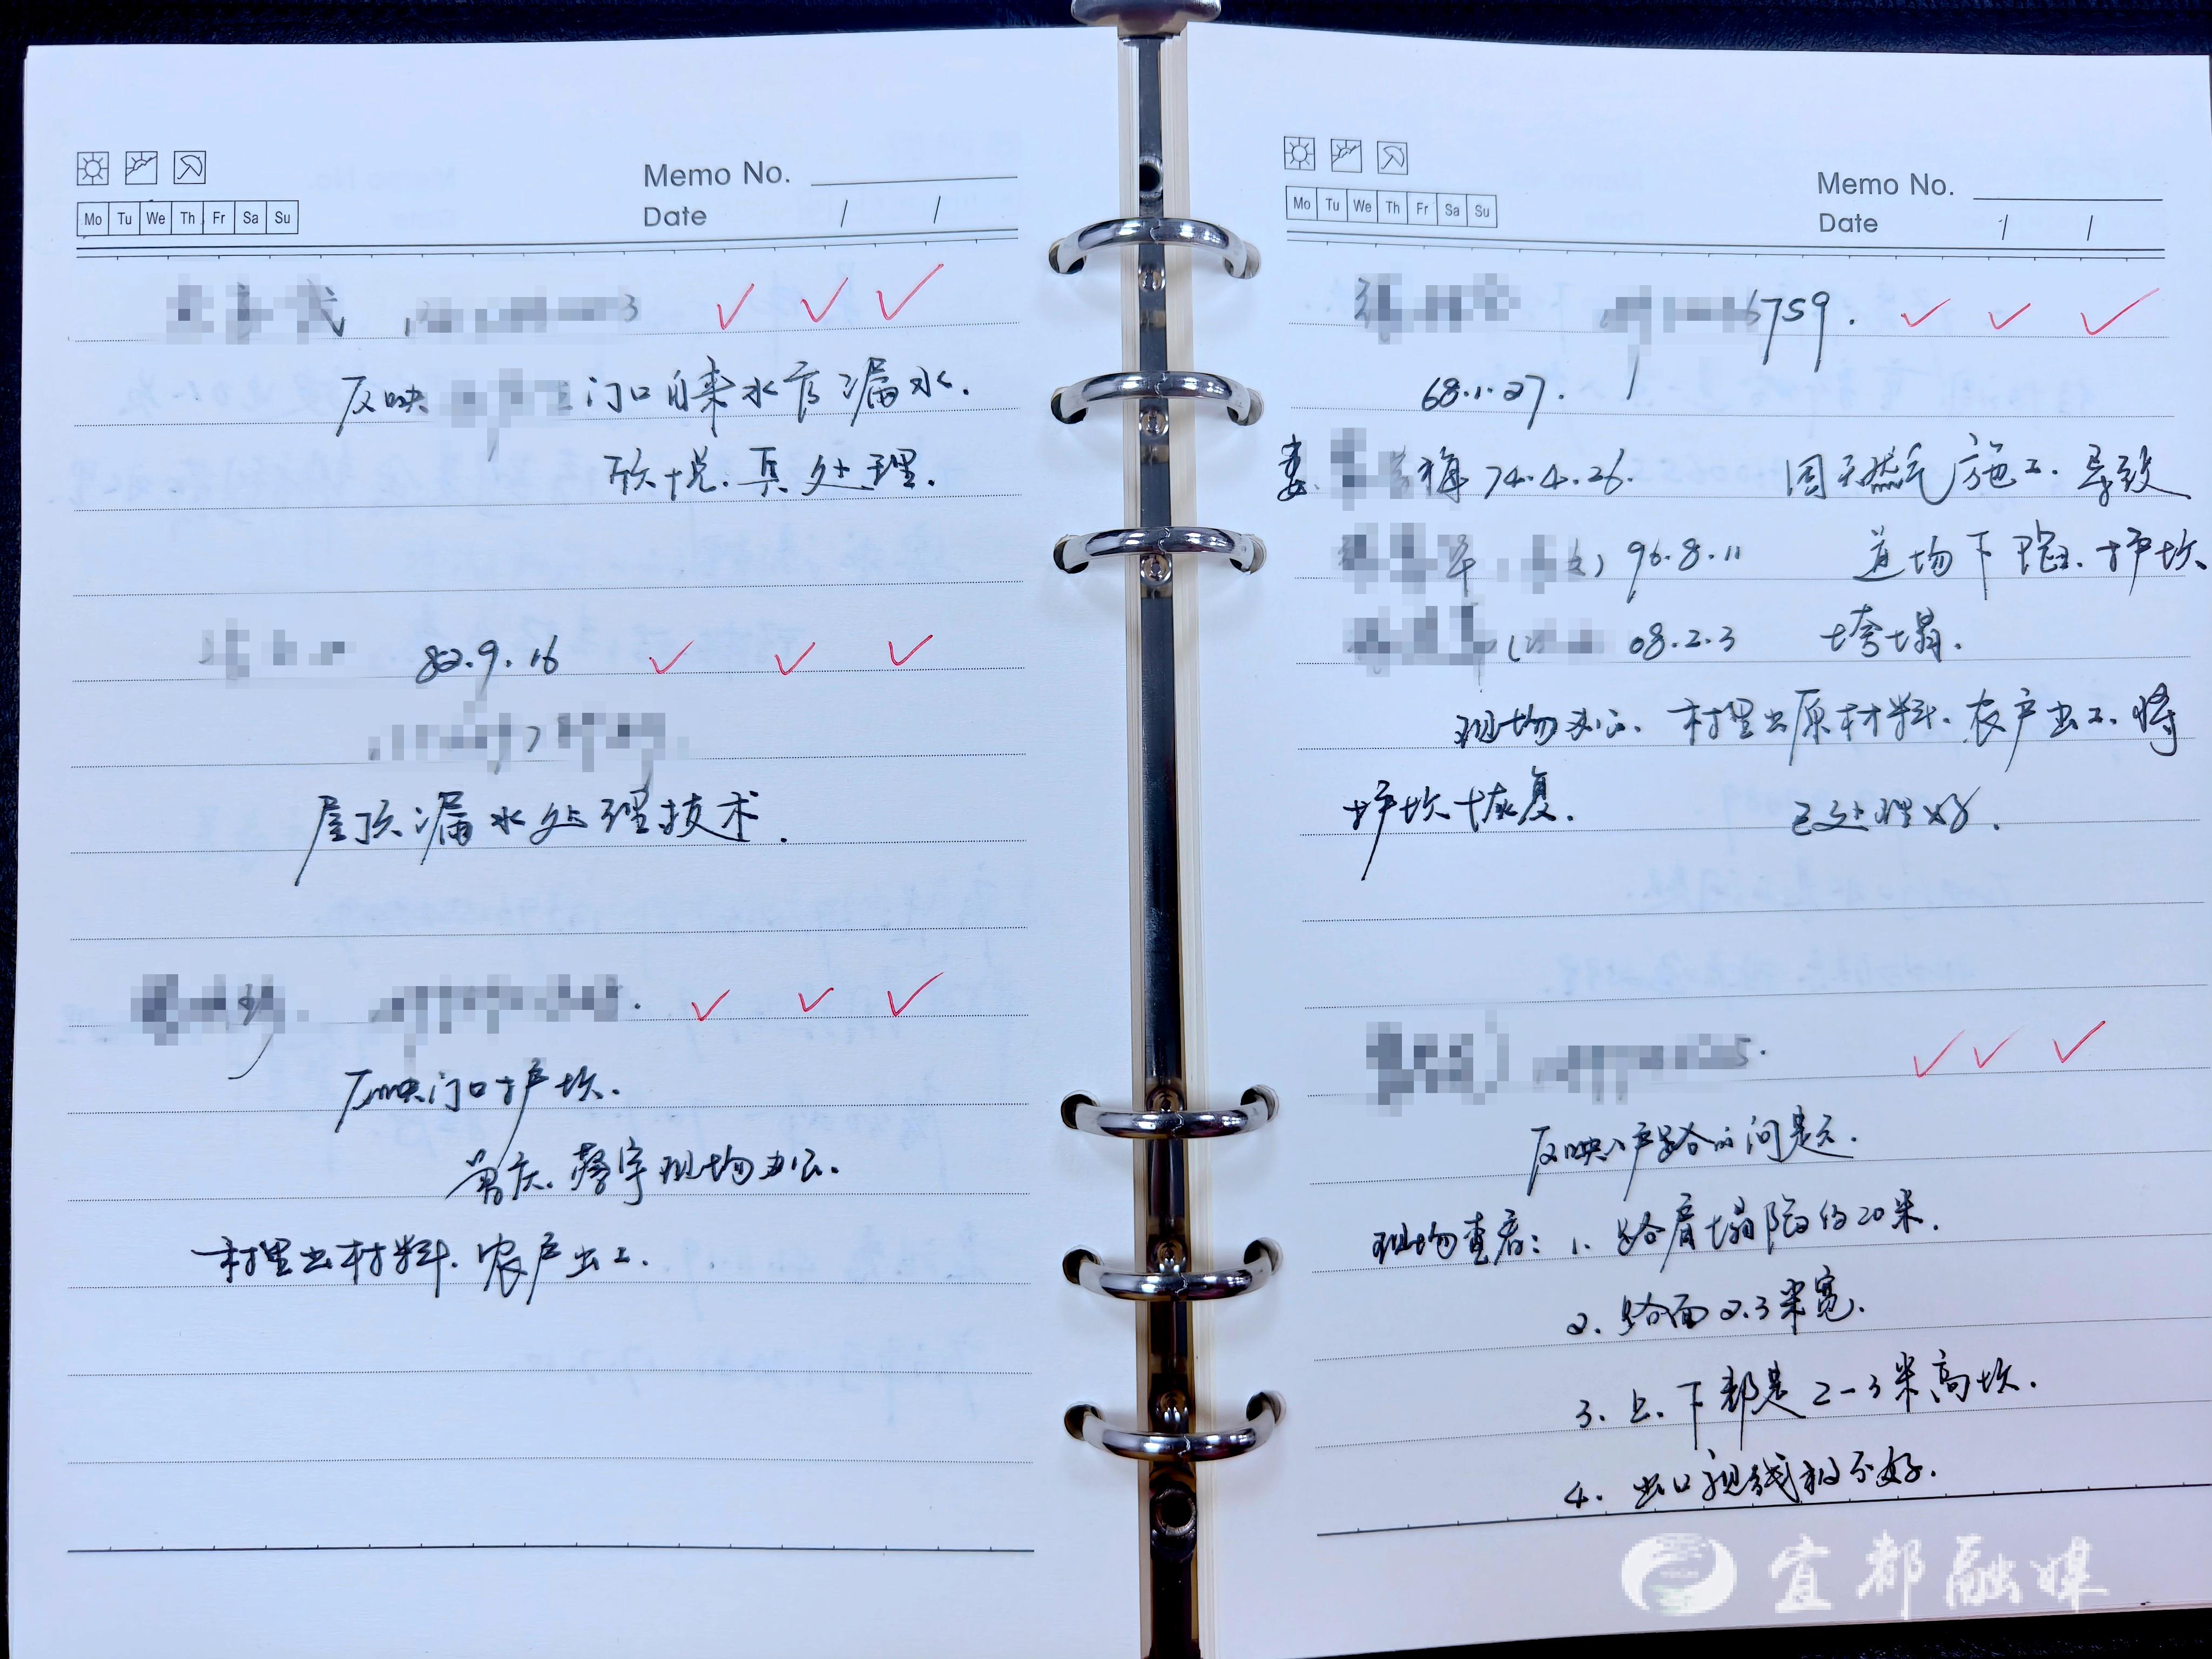 Memo No.
Mo Tu We Th Fr Sa Su
Date / /
✓ ✓ ✓
反映 门口自来水管漏水.
处理.
82.9.16 ✓ ✓ ✓
屋顶漏水处理技术.
✓ ✓ ✓
反映门口护坎.
现场办公.
村里出材料.农户出工.
Memo No.
Mo Tu We Th Fr Sa Su
Date / /
6759. ✓ ✓ ✓
68.1.27.
妻. 梅 74.4.26. 因天然气施工.导致
96.8.11 道场下陷.护坎
08.2.3 垮塌.
现场办公.村里出原材料.农户出工.将
护坎恢复. 已处理好.
✓ ✓ ✓
反映入户路的问题.
现场查看: 1. 路肩塌陷约20米.
2. 路面2.3米宽.
3. 上.下都是2-3米高坎.
4. 出口视线极不好.
宜都融媒